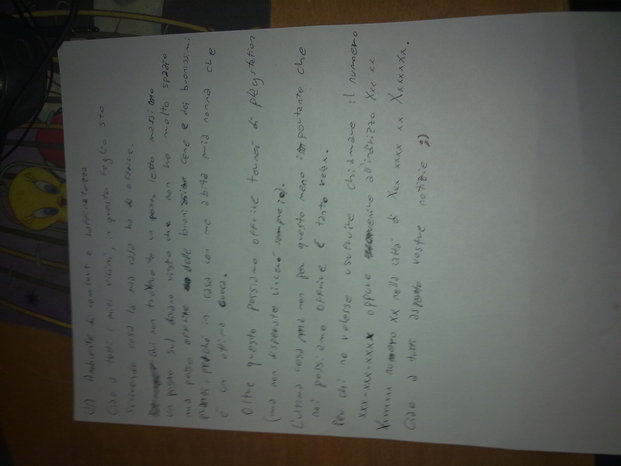 Un Ambiente di comfort e
Ciao a tutti i miei vicini, in questo foglio sto
scrivendo cosa la mia casa ha da offrire.
chi non trovasse un posto letto
un posto sul divano visto che non ho molto spazio
ma posso offrire delle cene e dei buonissimi
pranzi, perché in casa con me abita mia nonna che
è un ottima cuoca.
Oltre questo possiamo offrire tornei di playstation
(ma non disperate vincerò sempre io).
L'ultima cosa ma non per questo meno importante che
noi possiamo offrire è tanto relax.
Per chi ne volesse usufruire chiamare il numero
xxx-xxx-xxxx oppure venire all'indirizzo Xxx xx
Xxxxxxx numero xx nella città di Xxx xxxx xx Xxxxxxxx.
Ciao a tutti aspetto vostre notizie ;)